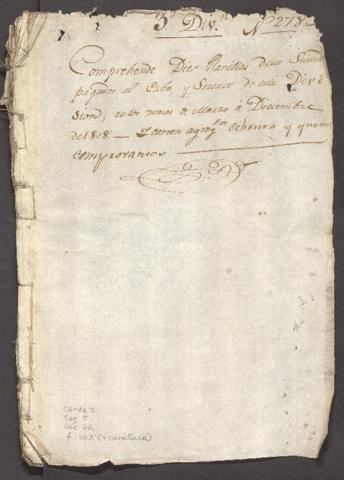 3ª Divⁿ. Nº 278
Comprehende Diez Planillas de los Sueldos
pagados al Cabo, y Serenos de esta Divi
sion; en los meses de Marzo à Diciembre
de 1808 — y tienen agreg.ˢ Ochenta y quatro
comprovantes
Caj 5
f 102 (+ caratula)